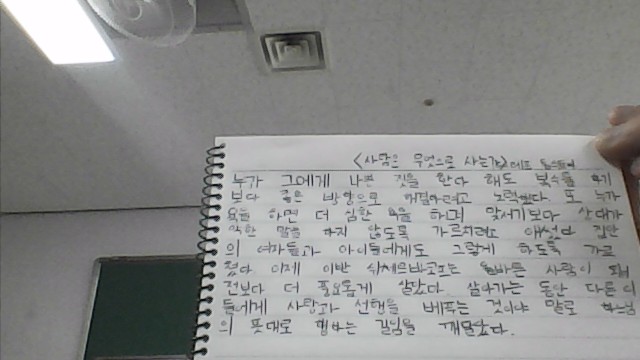 <사람은 무엇으로 사는가> 레프 톨스토이
누가 그에게 나쁜 짓을 한다 해도 복수를 하기
보다 좋은 방향으로 해결하려고 노력했다. 또 누가
욕을 하면 더 심한 욕을 하며 맞서기보다 상대가
악한 말을 하지 않도록 가르치려고 애썼다 집안
의 여자들과 아이들에게도 그렇게 하도록 가르
쳤다 이제 이반 올바른 사람이 되어
전보다 더 풍요롭게 살았다. 살아가는 동안 다른 이
들에게 사랑과 선행을 베푸는 것이야 말로 하느님
의 뜻대로 행하는 길임을 깨달았다.